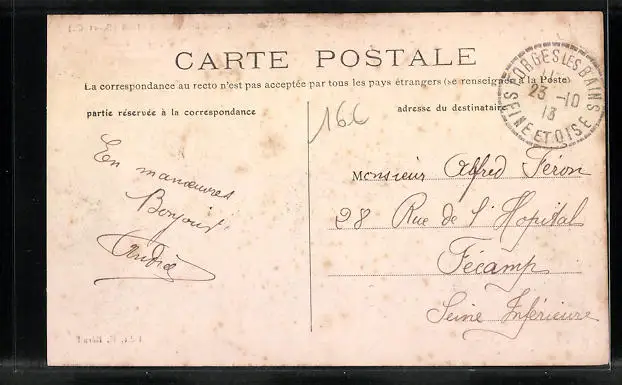 CARTE POSTALE
La correspondance au recto n'est pas acceptée par tous les pays étrangers (se renseigner à la Poste)
partie réservée à la correspondance
adresse du destinataire
166
FORGES LES BAINS
23 -10
13
SEINE ET OISE
En manœuvres
Bonjour
André
Monsieur Alfred Féron
28 Rue de l'Hopital
Fécamp
Seine Inférieure